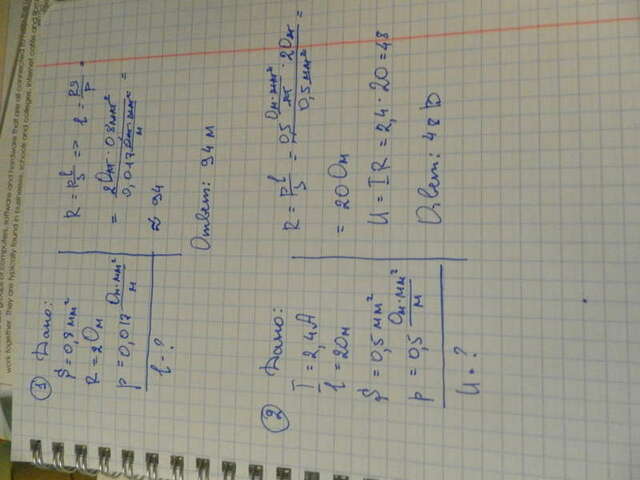 work together. They are typically found in businesses, schools and colleges. Internet cafes and
① Дано:
S = 0,8 мм²
R = 2 Ом
ρ = 0,017 Ом·мм²/м
l - ?
R = ρ l/S => l = RS/ρ =
= 2 Ом · 0,8 мм² / 0,017 Ом·мм²/м =
≈ 94
Ответ: 94 м
② Дано:
I = 2,4 А
l = 20 м
S = 0,5 мм²
ρ = 0,5 Ом·мм²/м
U = ?
R = ρ l/S = 0,5 Ом·мм²/м · 20 м / 0,5 мм² =
= 20 Ом
U = IR = 2,4 · 20 = 48
Ответ: 48 В